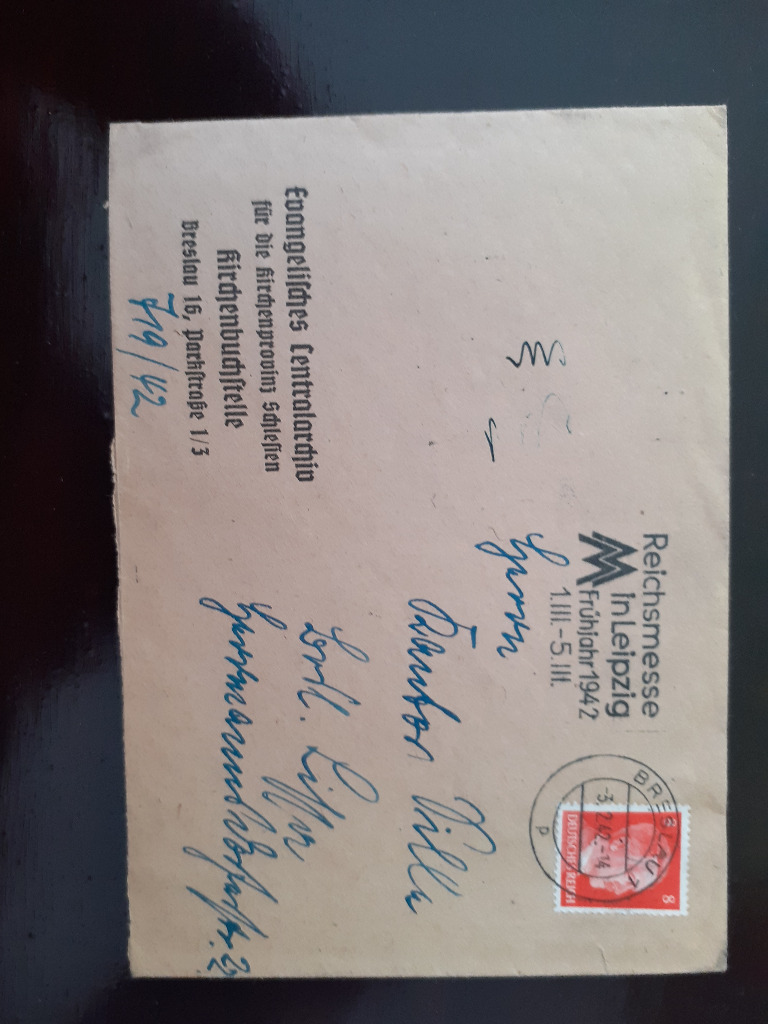 Evangelisches Centralarchiv
für die Kirchenprovinz Schlesien
Kirchenbuchstelle
Breslau 16, Parkstraße 1/3
719/42
Reichsmesse
in Leipzig
Frühjahr 1942
1.III.-5.III.
BRESLAU 1
-3.2.42.-14
p
8
DEUTSCHES REICH
Herrn
Kantor
Brsl.